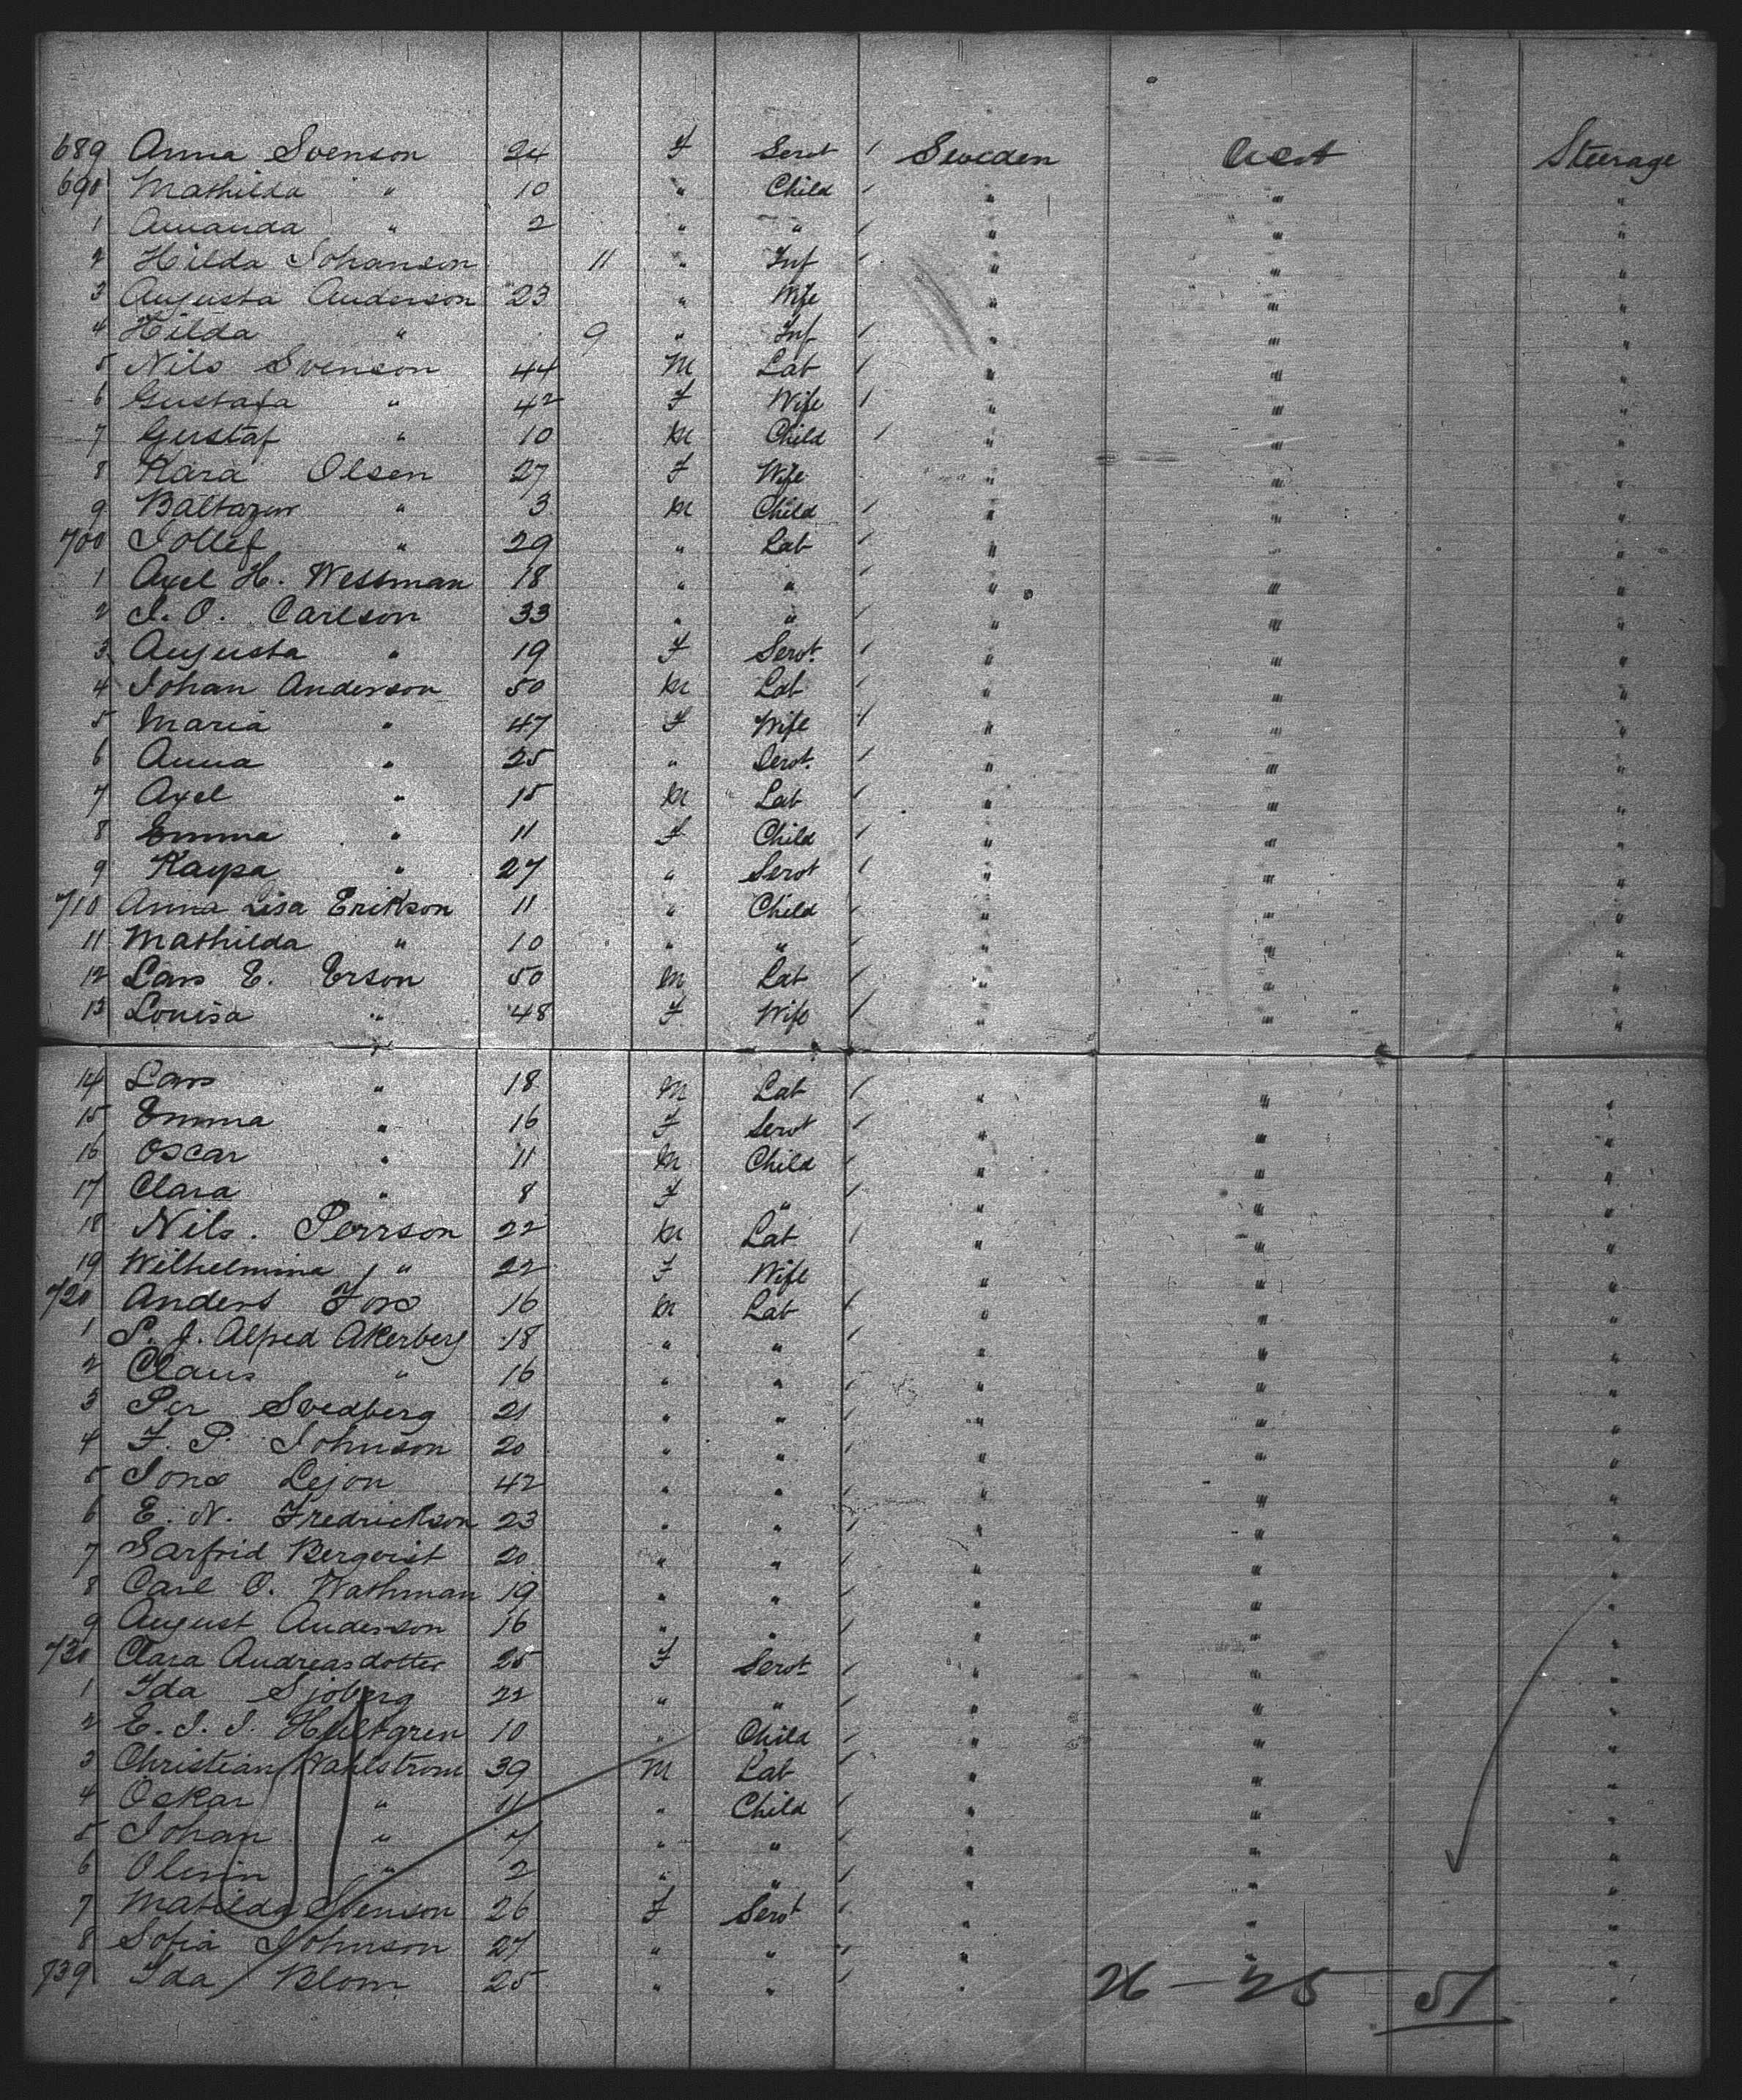 689 Anna Svenson 24 F Servt / Sweden West Steerage
690 Mathilda " 10 " Child / " " "
1 Amanda " 2 " " / " " "
2 Hilda Johanson 11 " Inf / " " "
3 Augusta Anderson 23 " Wife " " "
4 Hilda " 9 " Inf / " " "
5 Nils Svenson 44 M Lab / " " "
6 Gustafa " 42 F Wife / " " "
7 Gustaf " 10 M Child / " " "
8 Kara Olsen 27 F Wife " " "
9 Baltazer " 3 M Child / " " "
700 Jollef " 29 " Lab / " " "
1 Axel H. Wessman 18 " " / " " "
2 J. O. Carlson 33 " " / " " "
3 Augusta " 19 F Servt. / " " "
4 Johan Anderson 50 M Lab / " " "
5 Maria " 47 F Wife / " " "
6 Anna " 25 " Servt. / " " "
7 Axel " 15 M Lab / " " "
8 Emma " 11 F Child / " " "
9 Kaysa " 27 " Servt / " " "
710 Anna Lisa Erikson 11 " Child / " " "
11 Mathilda " 10 " " / " " "
12 Lars E. Erson 50 M Lab / " " "
13 Louisa " 48 F Wife / " " "
14 Lars " 18 M Lab / " " "
15 Emma " 16 F Servt / " " "
16 Oscar " 11 M Child / " " "
17 Clara " 8 F " / " " "
18 Nils. Perrson 22 M Lab / " " "
19 Wilhelmina " 22 F Wife " " "
720 Anders Fors 16 M Lab / " " "
1 P. J. Alfred Akerberg 18 " " / " " "
2 Claus " 16 " " / " " "
3 Per Svedberg 21 " " / " " "
4 F. P. Johnson 20 " " / " " "
5 Jons Lejon 42 " " / " " "
6 E. N. Fredrickson 23 " " / " " "
7 Sarfrid Berqvist 20 " " / " " "
8 Carl O. Wathman 19 " " / " " "
9 August Anderson 16 " " / " " "
730 Clara Andreasdotter 25 F Servt / " " "
1 Ida Sjoberg 22 " " / " " "
2 E. J. J. Hultgren 10 " Child / " " "
3 Christian Wahlstrom 39 M Lab / " " "
4 Oskar " 11 " Child / " " "
5 Johan " 7 " " / " " "
6 " 2 " " / " " "
7 Matilda Svenson 26 F Servt / " " "
8 Sofia Johnson 27 " " / " " "
739 Ida Blom 25 " " / " "
26 — 25 51